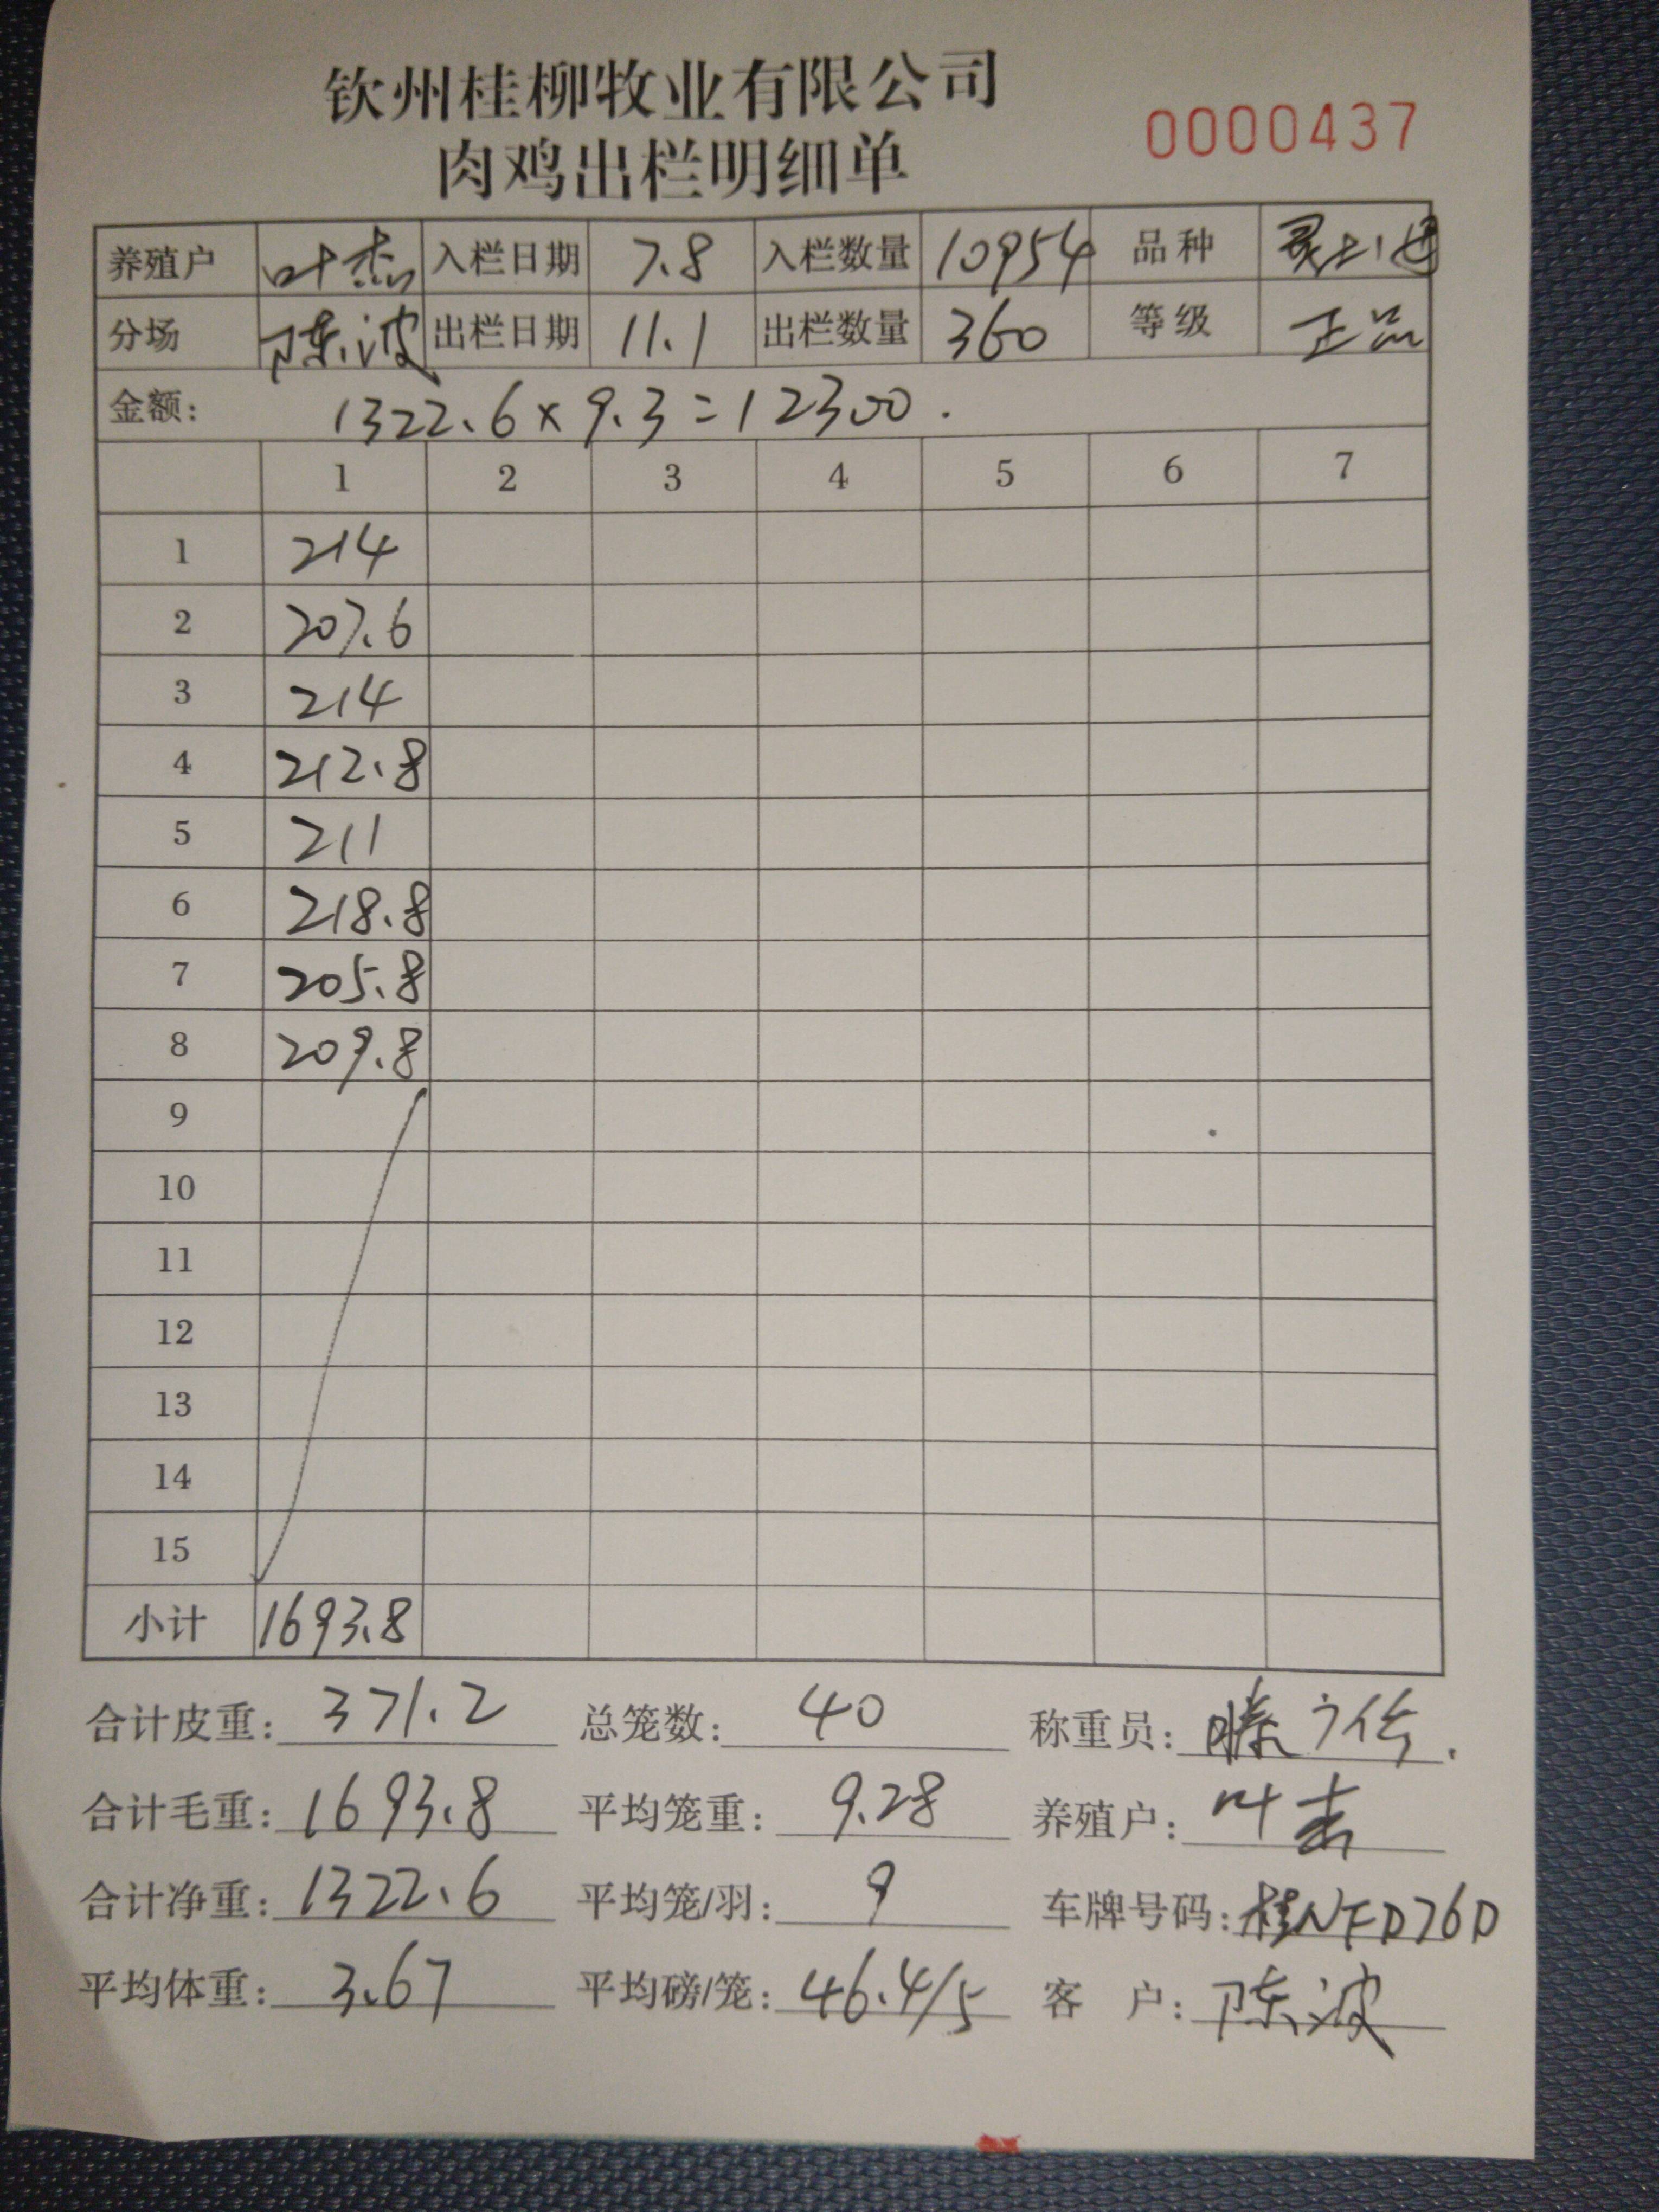 钦州桂柳牧业有限公司
肉鸡出栏明细单
0000437
养殖户 叶杰 入栏日期 7.8 入栏数量 10954 品种
分场 陈波 出栏日期 11.1 出栏数量 360 等级 正品
金额: 1322.6×9.3=12300.
1 2 3 4 5 6 7
1 214
2 207.6
3 214
4 212.8
5 211
6 218.8
7 205.8
8 209.8
9
10
11
12
13
14
15
小计 1693.8
合计皮重: 371.2 总笼数: 40 称重员:
合计毛重: 1693.8 平均笼重: 9.28 养殖户: 叶杰
合计净重: 1322.6 平均笼/羽: 9 车牌号码: 桂NFD76D
平均体重: 3.67 平均磅/笼: 46.4/5 客 户: 陈波